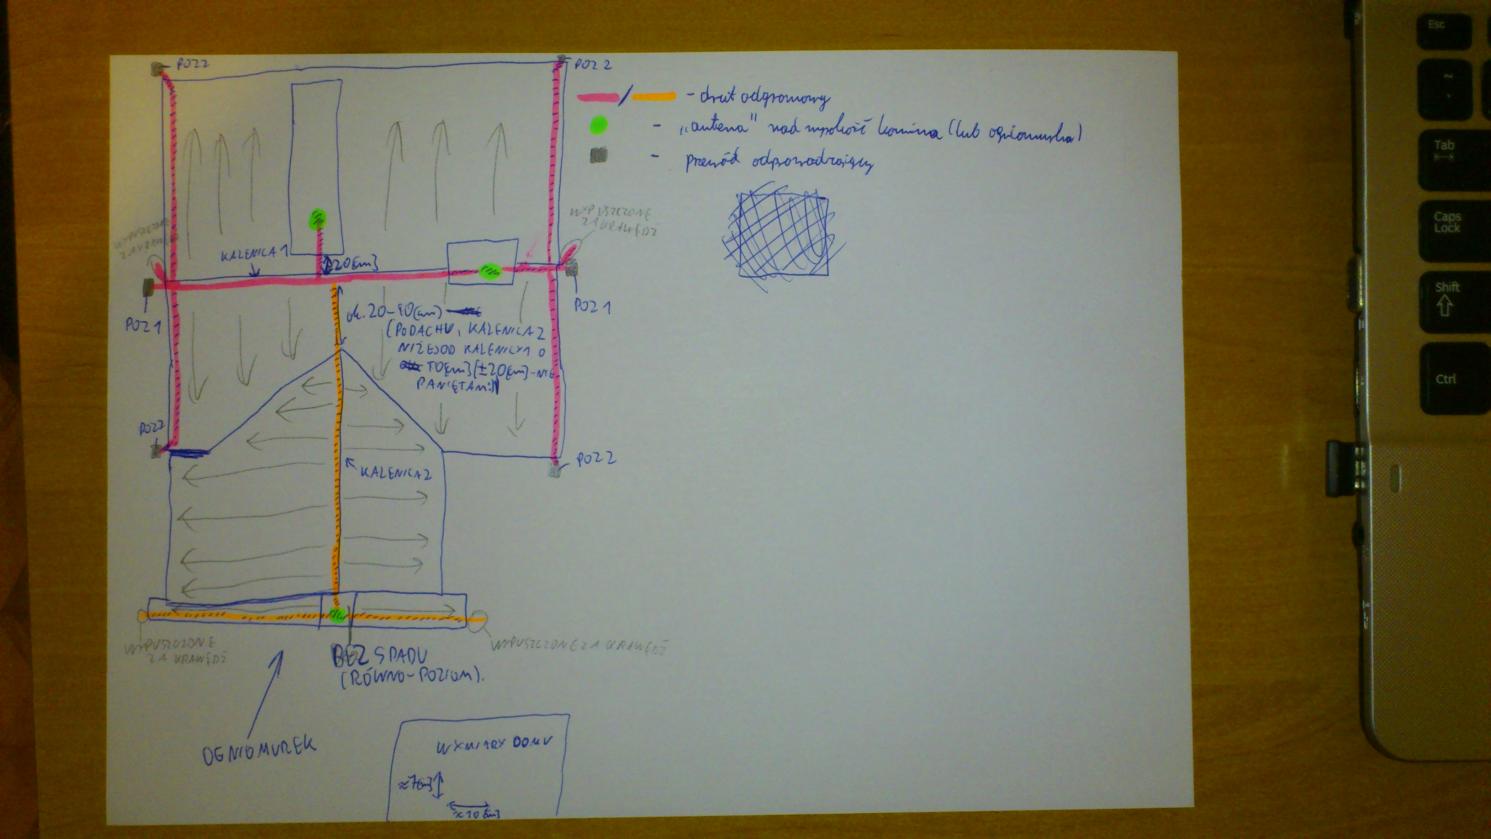 POZ2
POZ 2
- drut odgromowy
- „antena" nad wysokość komina (lub ogniomurka)
- przewód odprowadzający
WYPUSZCZONE
ZA KRAWĘDŹ
WYPUSZCZONE
ZA KRAWĘDŹ
KALENICA 1
20[cm]
POZ 1
POZ 1
ok. 20-40[cm]
(PO DACHU, KALENICA 2
NIŻEJ OD KALENICY 1 O
10[cm] [±20[cm]-NIE
PAMIĘTAM:)
POZ2
POZ2
KALENICA 2
WYPUSZCZONE
ZA KRAWĘDŹ
WYPUSZCZONE ZA KRAWĘDŹ
BEZ SPADU
(RÓWNO-POZIOM).
OGNIOMUREK
WYMIARY DOMU
≈7[m]
≈10[m]
Esc
~
`
Tab
Caps
Lock
Shift
Ctrl